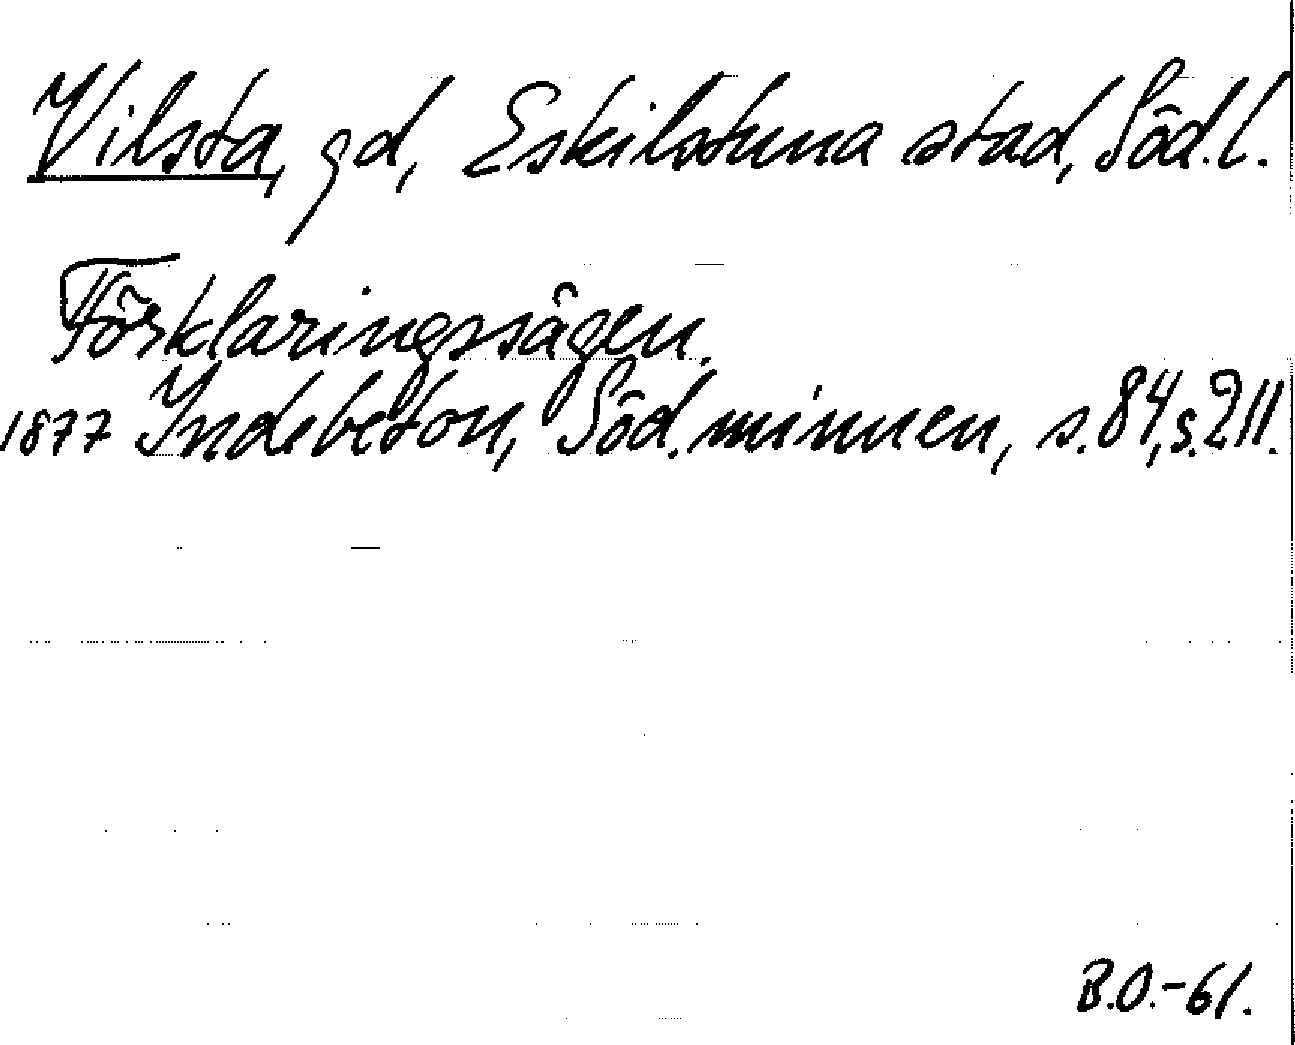 Vilsta, gd, Eskilstuna stad, Söd. l.
Förklaringssägen.
1877 Indebetou, Söd. minnen, s. 84, s. 211.
B.O.-61.